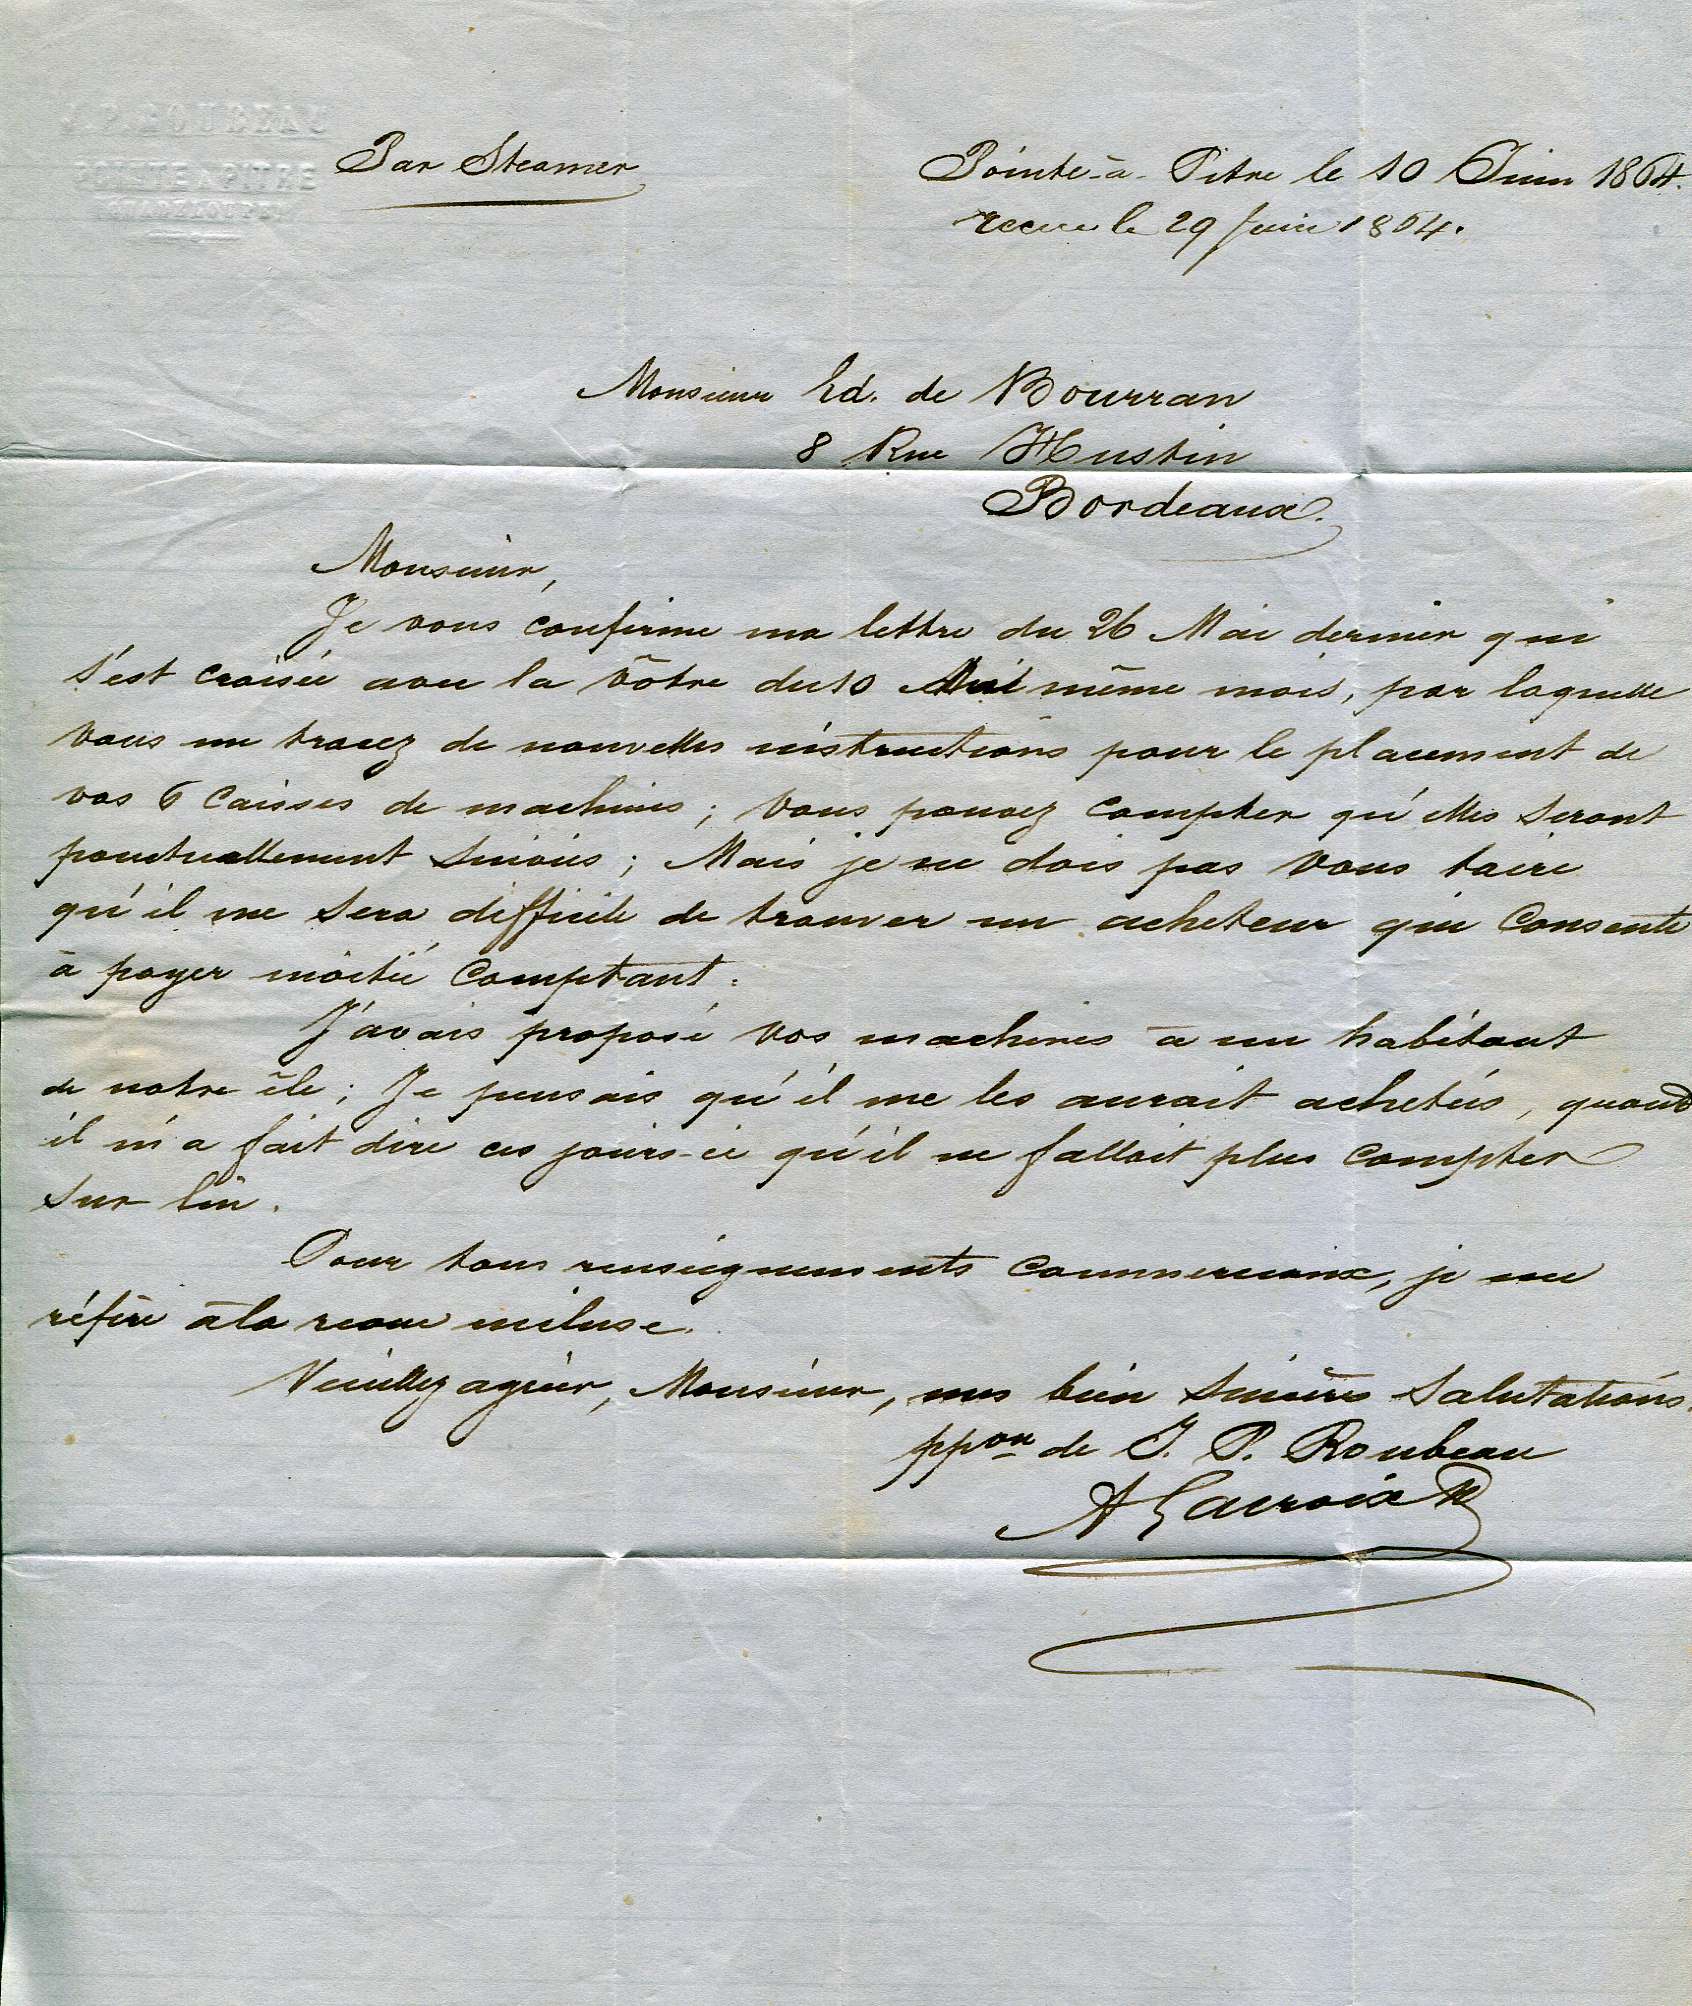 J. P. ROUBEAU
POINTE A PITRE
GUADELOUPE
Par Steamer
Pointe-à-Pitre le 10 Juin 1864.
recue le 29 Juin 1864.
Monsieur Ed. de Bourran
8 Rue Hustin
Bordeaux.
Monsieur,
Je vous confirme ma lettre du 26 Mai dernier qui
s'est croisée avec la vôtre du 10 même mois, par laquelle
vous me tracez de nouvelles instructions pour le placement de
vos 6 caisses de machines ; vous pouvez compter qu'elles seront
ponctuellement suivies ; Mais je ne dois pas vous taire
qu'il me sera difficile de trouver un acheteur qui consente
à payer moitié comptant.
J'avais proposé vos machines à un habitant
de notre île ; Je pensais qu'il me les aurait achetées, quand
il m'a fait dire ces jours-ci qu'il ne fallait plus compter
sur lui.
Pour tous renseignements commerciaux, je me
réfère à la revue incluse.
Veuillez agréer, Monsieur, mes bien sincères salutations.
ppon de J. P. Roubeau
A Lacroix